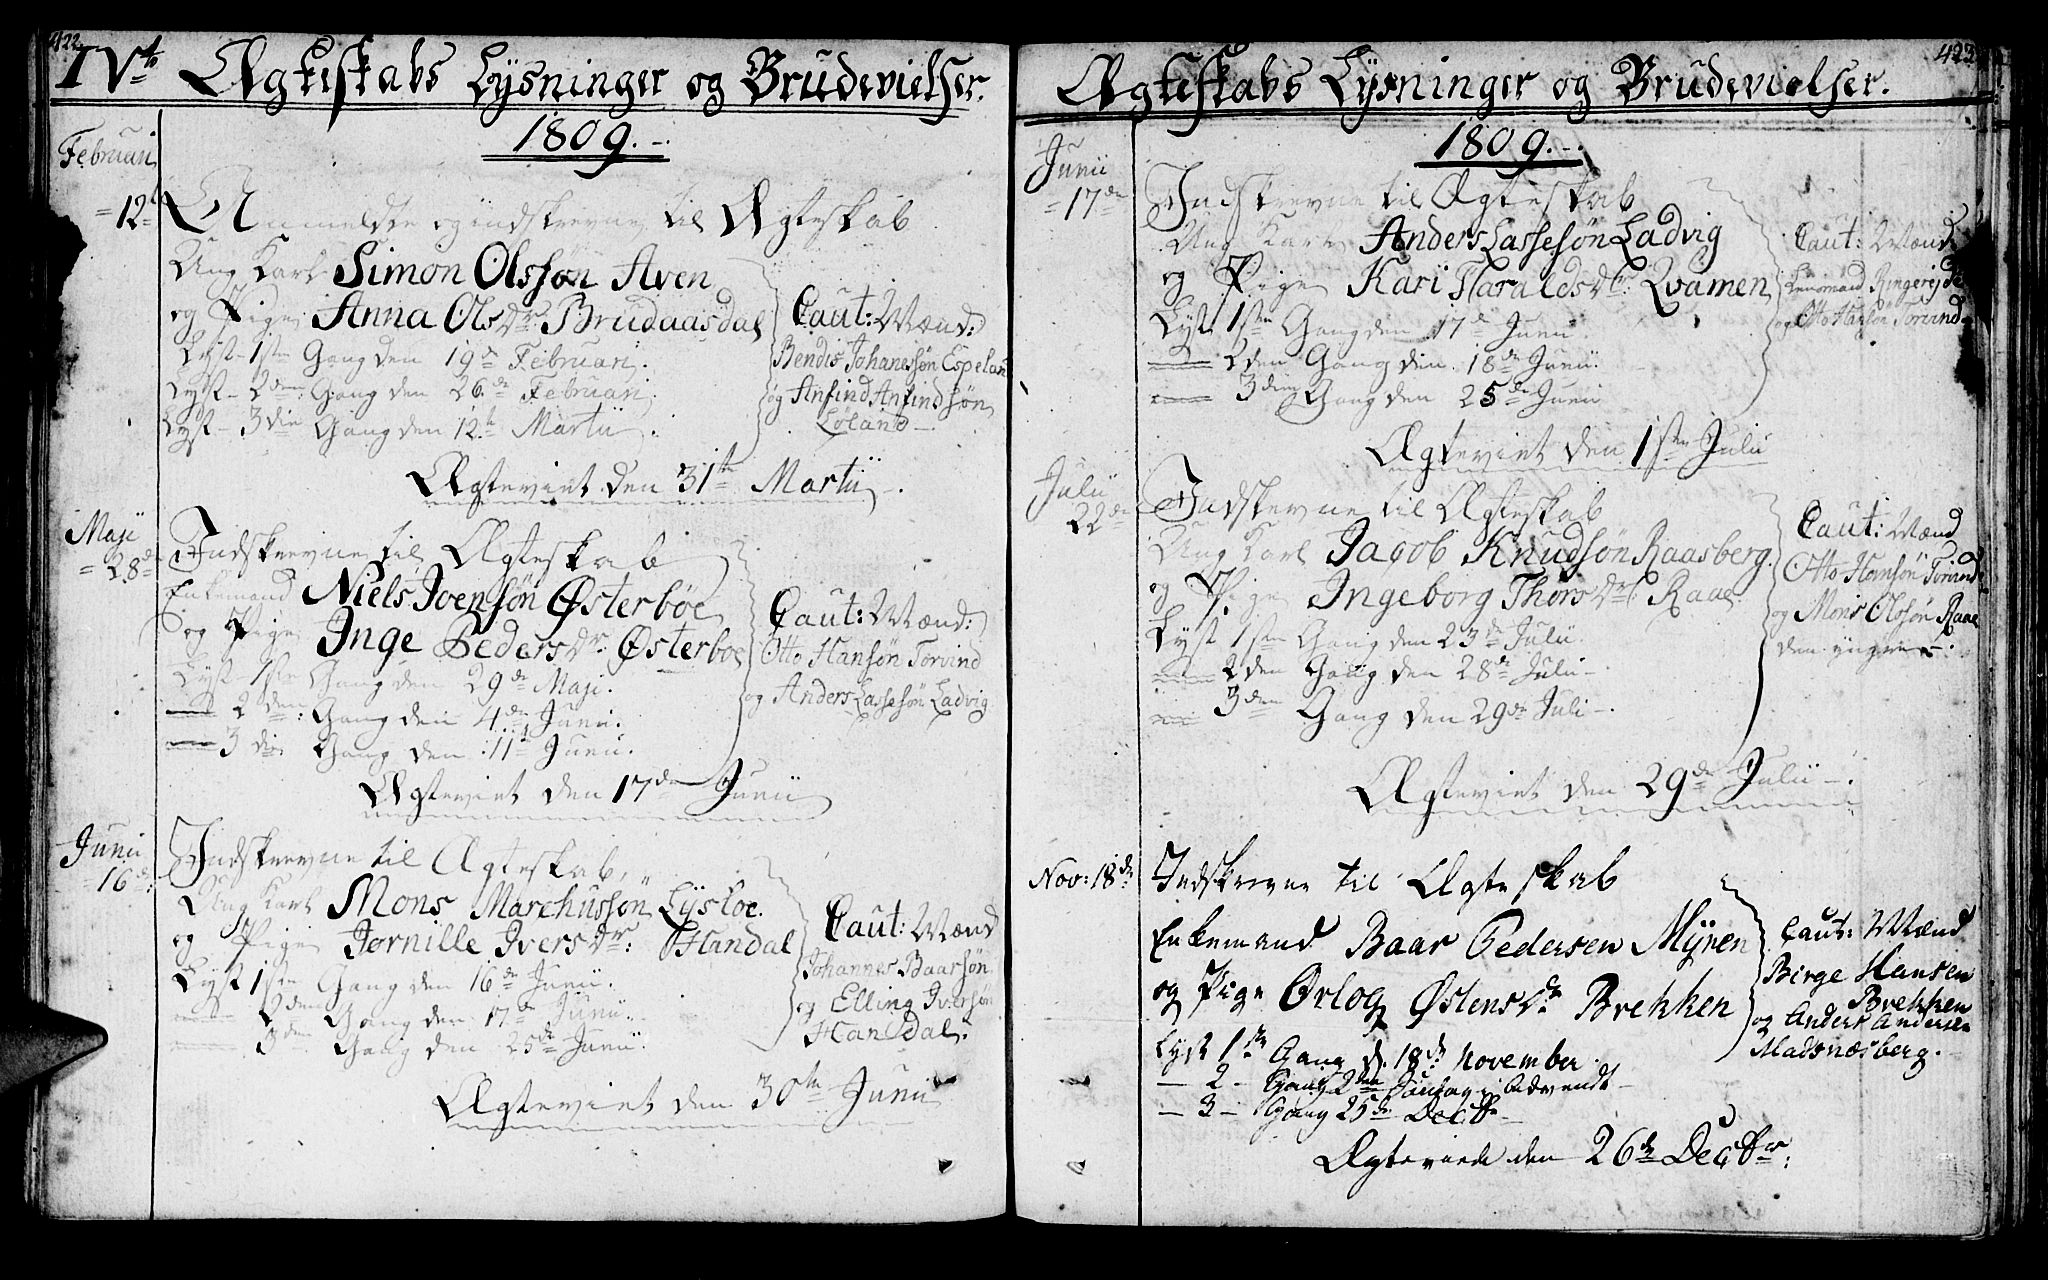 422
IVde Ægteskabs Lysninger og Brudevielser.
1809.
Februari
12te
Anmeldte og indskrevne til Ægteskab
Ung Karl Simon Olssøn Aven
og Pige Anna Olsdr Brudaasdal
Lyst 1ste Gang den 19de Februari.
Lyst 2den Gang den 26de Februari
Lyst 3die Gang den 12te Martii
Caut: Mænd:
Bendis Johanessøn Espelan
og Anfind Anfindsøn
Løland
Ægteviet den 31te Martii
Maji
28de
Indskrevne til Ægteskab
Enkemand Niels Joensøn Østerbøe
og Pige Inge Pedersdr. Østerboe
Lyst 1ste Gang den 29de Maji.
2den: Gang den 4de Junii.
3die Gang den 11te Junii.
Caut: Mænd:
Otto Hansøn Torvind
og Anders Lassesøn Ladvig
Ægteviet den 17de Junii
Junii
16de
Indskrevne til Ægteskab,
Ung Karl Mons Marchussøn Lysloe.
og Pige Jornille Iversdr: Handal
Lyst 1ste Gang den 16de Junii.
2den Gang den 17de Junii.
3die Gang den 25de Junii
Caut: Mænd
Johannes Baarsøn
og Elling Iversøn
Handal.
Ægteviet den 30te Junii
423
Ægteskabs Lysninger og Brudevielser.
1809.
Junii
17de
Indskrevne til Ægteskab
Ung Karl Anders Lassesøn Ladvig
og Pige Kari Haraldsdr: Qvamen
Lyst 1ste Gang den 17de Junii.
2den Gang den 18de Junii
3die Gang den 25de Junii
Caut: Mænd
Lensmand Ringereide
og Otto Hansøn Torvind
Ægteviet den 1ste Julii
Julii
22de
Indskrevne til Ægteskab
Ung Karl Jacob Knudsøn Raasberg.
og Pige Ingeborg Thorsdr Raae
Lyst 1ste Gang den 23de Julii
2den Gang den 28de Julii
3den Gang den 29de Juli
Caut: Mænd
Otto Hansøn Torvind
og Mons Olssøn Raae
den yngre
Ægteviet den 29de Julii
Nov: 18de
Indskrevne til Ægteskab
Enkemand Baar Pedersen Myren
og Pige Orlog Østensdr Brekken
Lyst 1ste Gang d. 18de November.
2 Gang 2den Søndag i Advendt
3 Gang 25de Decbr
Caut: Mænd
Birge Hansen
Brekken
og Anders Andersen
Madsnæsberg.
Ægteviede den 26de Decbr: